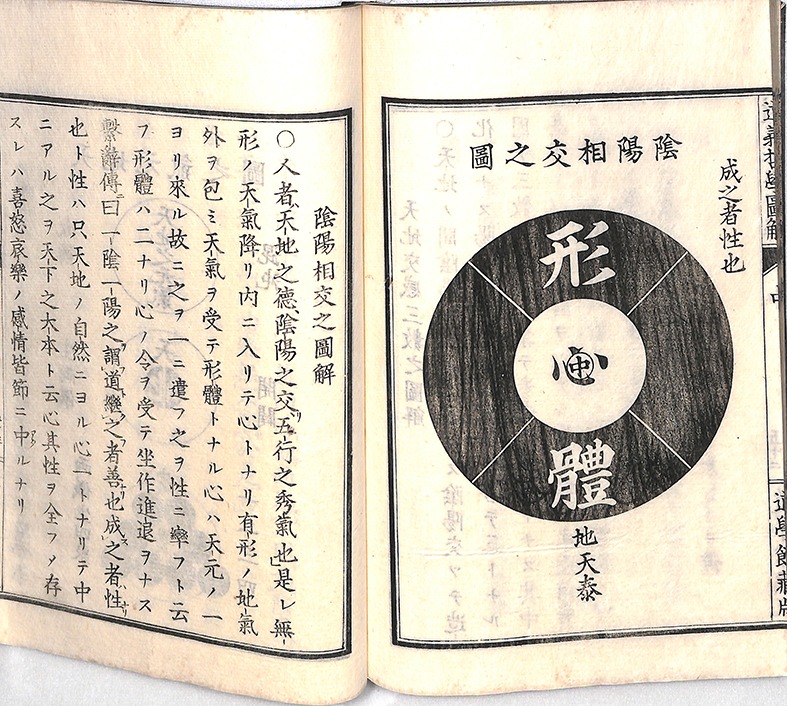 道學館藏版
成之者性也
陰陽相交之圖
形
心中
體
地天泰
陰陽相交之圖解
〇人者天地之德陰陽之交五行之秀氣也是レ無
形ノ天氣降リ内ニ入リテ心トナリ有形ノ地氣
外ヲ包ミ天氣ヲ受テ形體トナル心ハ天元ノ一
ヨリ來ル故ニ之ヲ一ニ遣フ之ヲ性ニ率フト云
フ形體ハ二ナリ心ノ令ヲ受テ坐作進退ヲナス
繫辭傳曰一陰一陽之謂道繼之者善也成之者性
也ト性ハ只天地ノ自然ニヨル心一トナリテ中
ニアル之ヲ天下之大本ト云心其性ヲ全フメ存
スレハ喜怒哀樂ノ感情皆節ニ中ルナリ